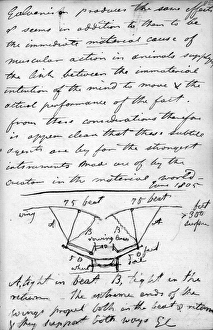 Galvanism produces the same effect
& seems in addition to them to be
the immediate material cause of
muscular action in animals supplying
the link between the immaterial
intention of the mind to move & the
actual performance of the fact.
from these considerations therefore
it appears clear that these subtle
agents are by far the strongest
instruments made use of by the
creator in the material world—
June 1805
75 beat 75 beat
wing
A B A
rowing
50
wheel
300
surface
A, tight in beat B, tight in the
return. The extreme ends of the
wings propel both in the beat & return
& they support both ways